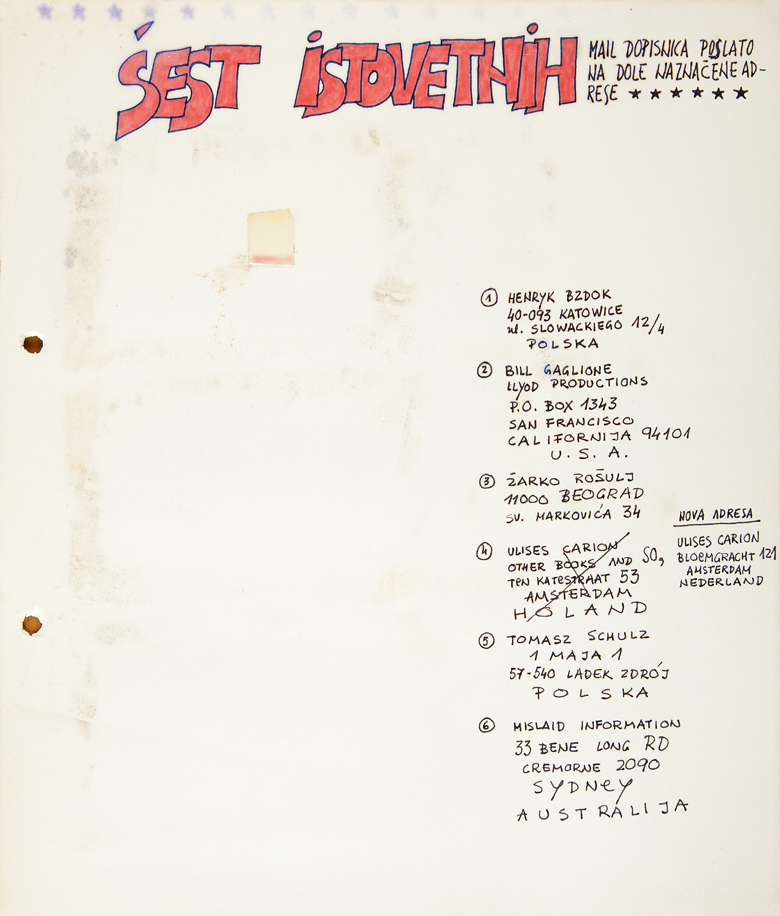 ŚEST ISTOVETNIH
MAIL DOPISNICA POSLATO
NA DOLE NAZNAČENE AD-
RESE ★ ★ ★ ★ ★ ★
① HENRYK BZDOK
40-093 KATOWICE
ul. SLOWACKIEGO 12/4
POLSKA
② BILL GAGLIONE
LLYOD PRODUCTIONS
P.O. BOX 1343
SAN FRANCISCO
CALIFORNIJA 94101
U. S. A.
③ ŽARKO ROŠULJ
11000 BEOGRAD
SV. MARKOVIĆA 34
④ ULISES CARION
OTHER BOOKS AND SO,
TEN KATESTRAAT 53
AMSTERDAM
HOLAND
NOVA ADRESA
ULISES CARION
BLOEMGRACHT 121
AMSTERDAM
NEDERLAND
⑤ TOMASZ SCHULZ
1 MAJA 1
57-540 LADEK ZDRÓJ
POLSKA
⑥ MISLAID INFORMATION
33 BENE LONG RD
CREMORNE 2090
SYDNEY
AUSTRALIJA